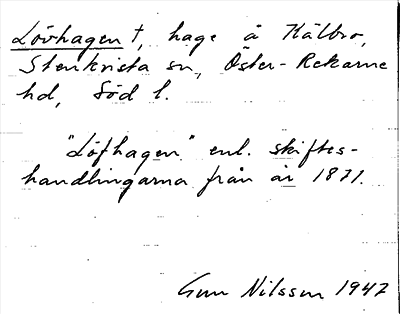 Lövhagen †, hage å Kälbro,
Stenkvista sn, Öster-Rekarne
hd, Söd l.
"Löfhagen" enl. skiftes-
handlingarna från år 1871.
Gun Nilsson 1947